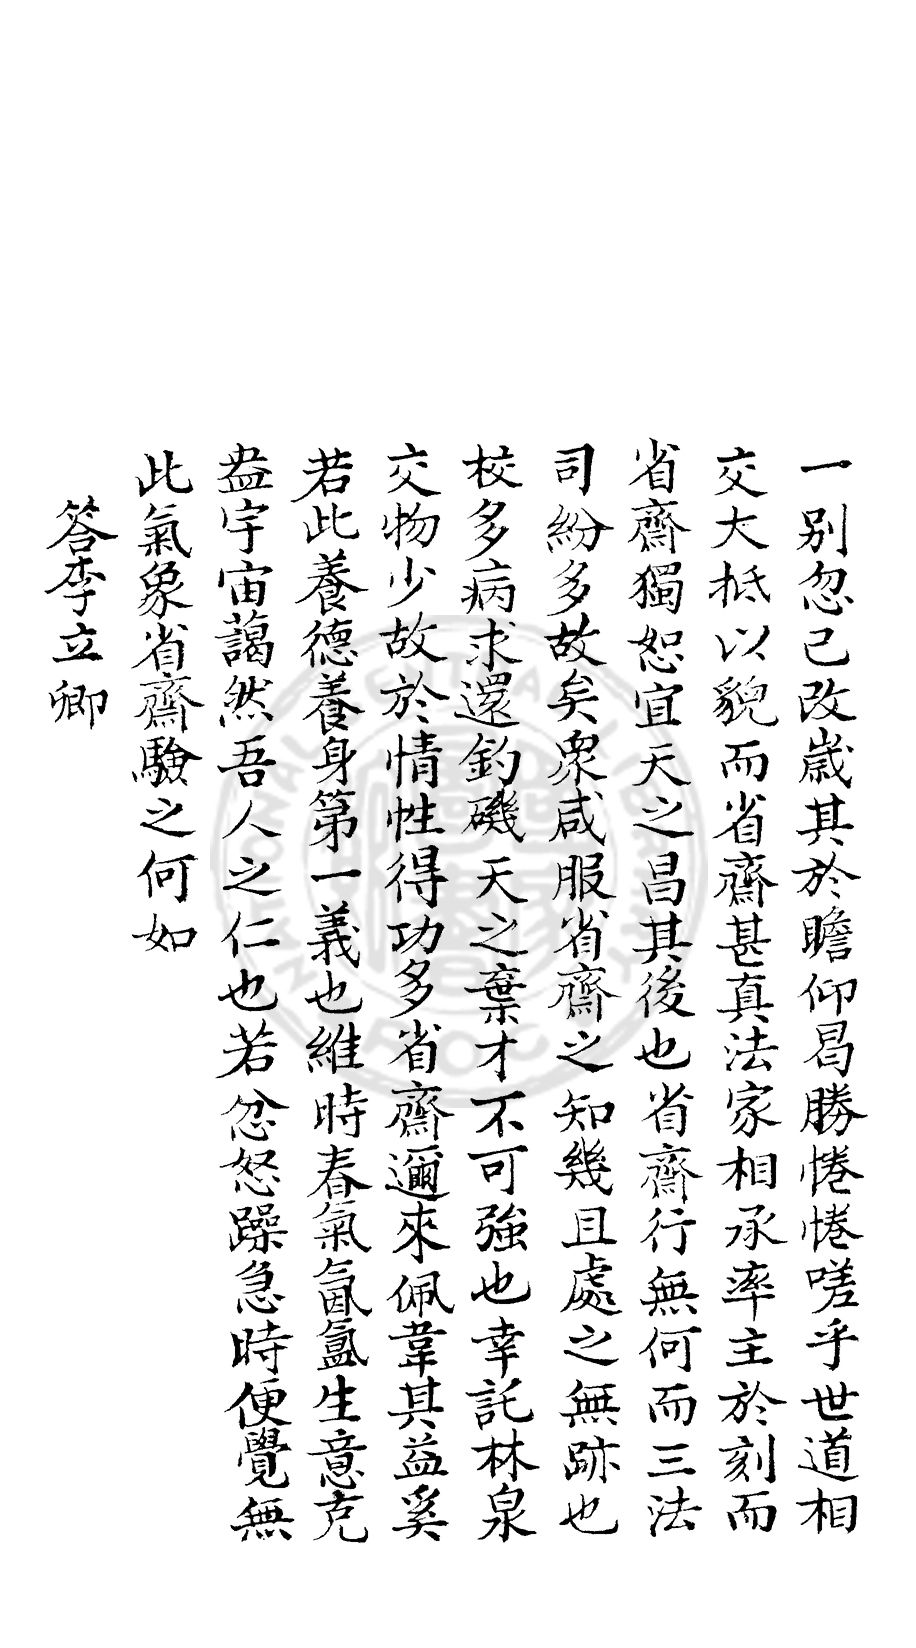 一别忽已改歲其於瞻仰曷勝惓惓嗟乎世道相
交大抵以貌而省齋甚真法家相承率主於刻而
省齋獨恕宜天之昌其後也省齋行無何而三法
司紛多故矣衆咸服省齋之知幾且處之無跡也
校多病求還釣磯天之棄才不可強也幸託林泉
交物少故於情性得功多省齋邇來佩韋其益奚
若此養德養身第一義也維時春氣氤氳生意充
盎宇宙藹然吾人之仁也若忿怒躁急時便覺無
此氣象省齋驗之何如
答李立卿